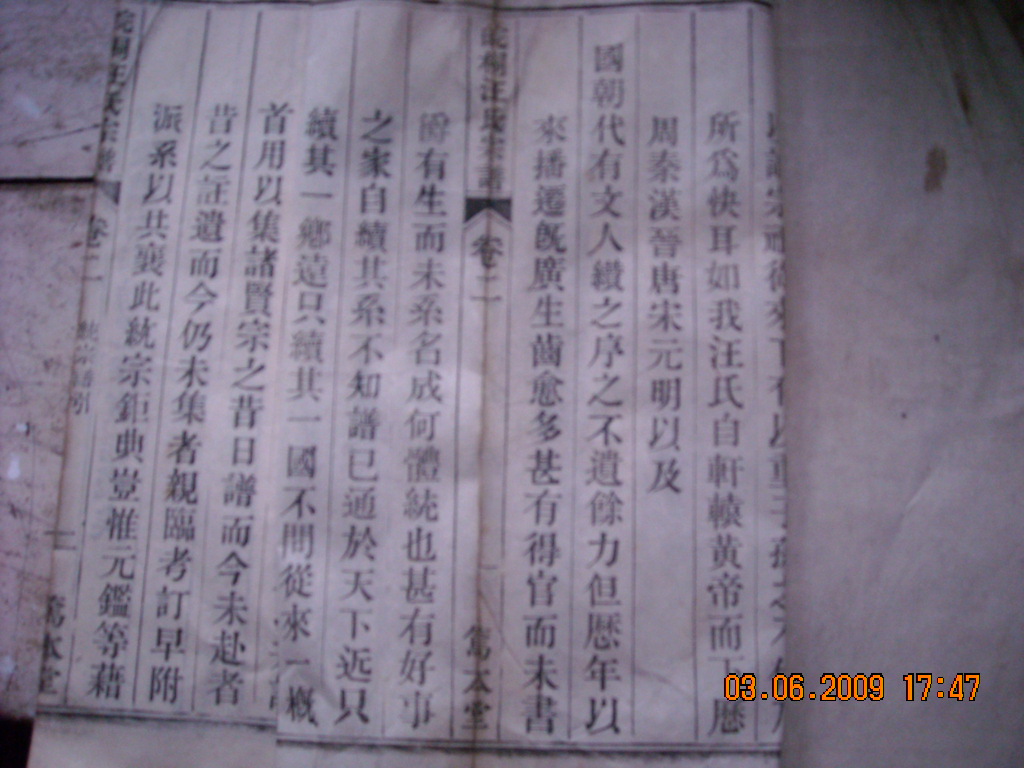 所為快耳如我汪氏自軒轅黃帝而下歷
周秦漢晉唐宋元明以及
國朝代有文人綴之序之不遺餘力但歷年以
來播遷既廣生齒愈多甚有得官而未書
汪氏宗譜
卷二
一
篤本堂
爵有生而未系名成何體統也甚有好事
之家自續其系不知譜已通於天下近只
續其一鄉遠只續其一國不問從來一概
首用以集諸賢宗之昔日譜而今未赴者
昔之註遺而今仍未集者親臨考訂早附
派系以共襄此統宗鉅典豈惟元鑑等藉
汪氏宗譜
卷二
二
篤本堂
03.06.2009 17:47